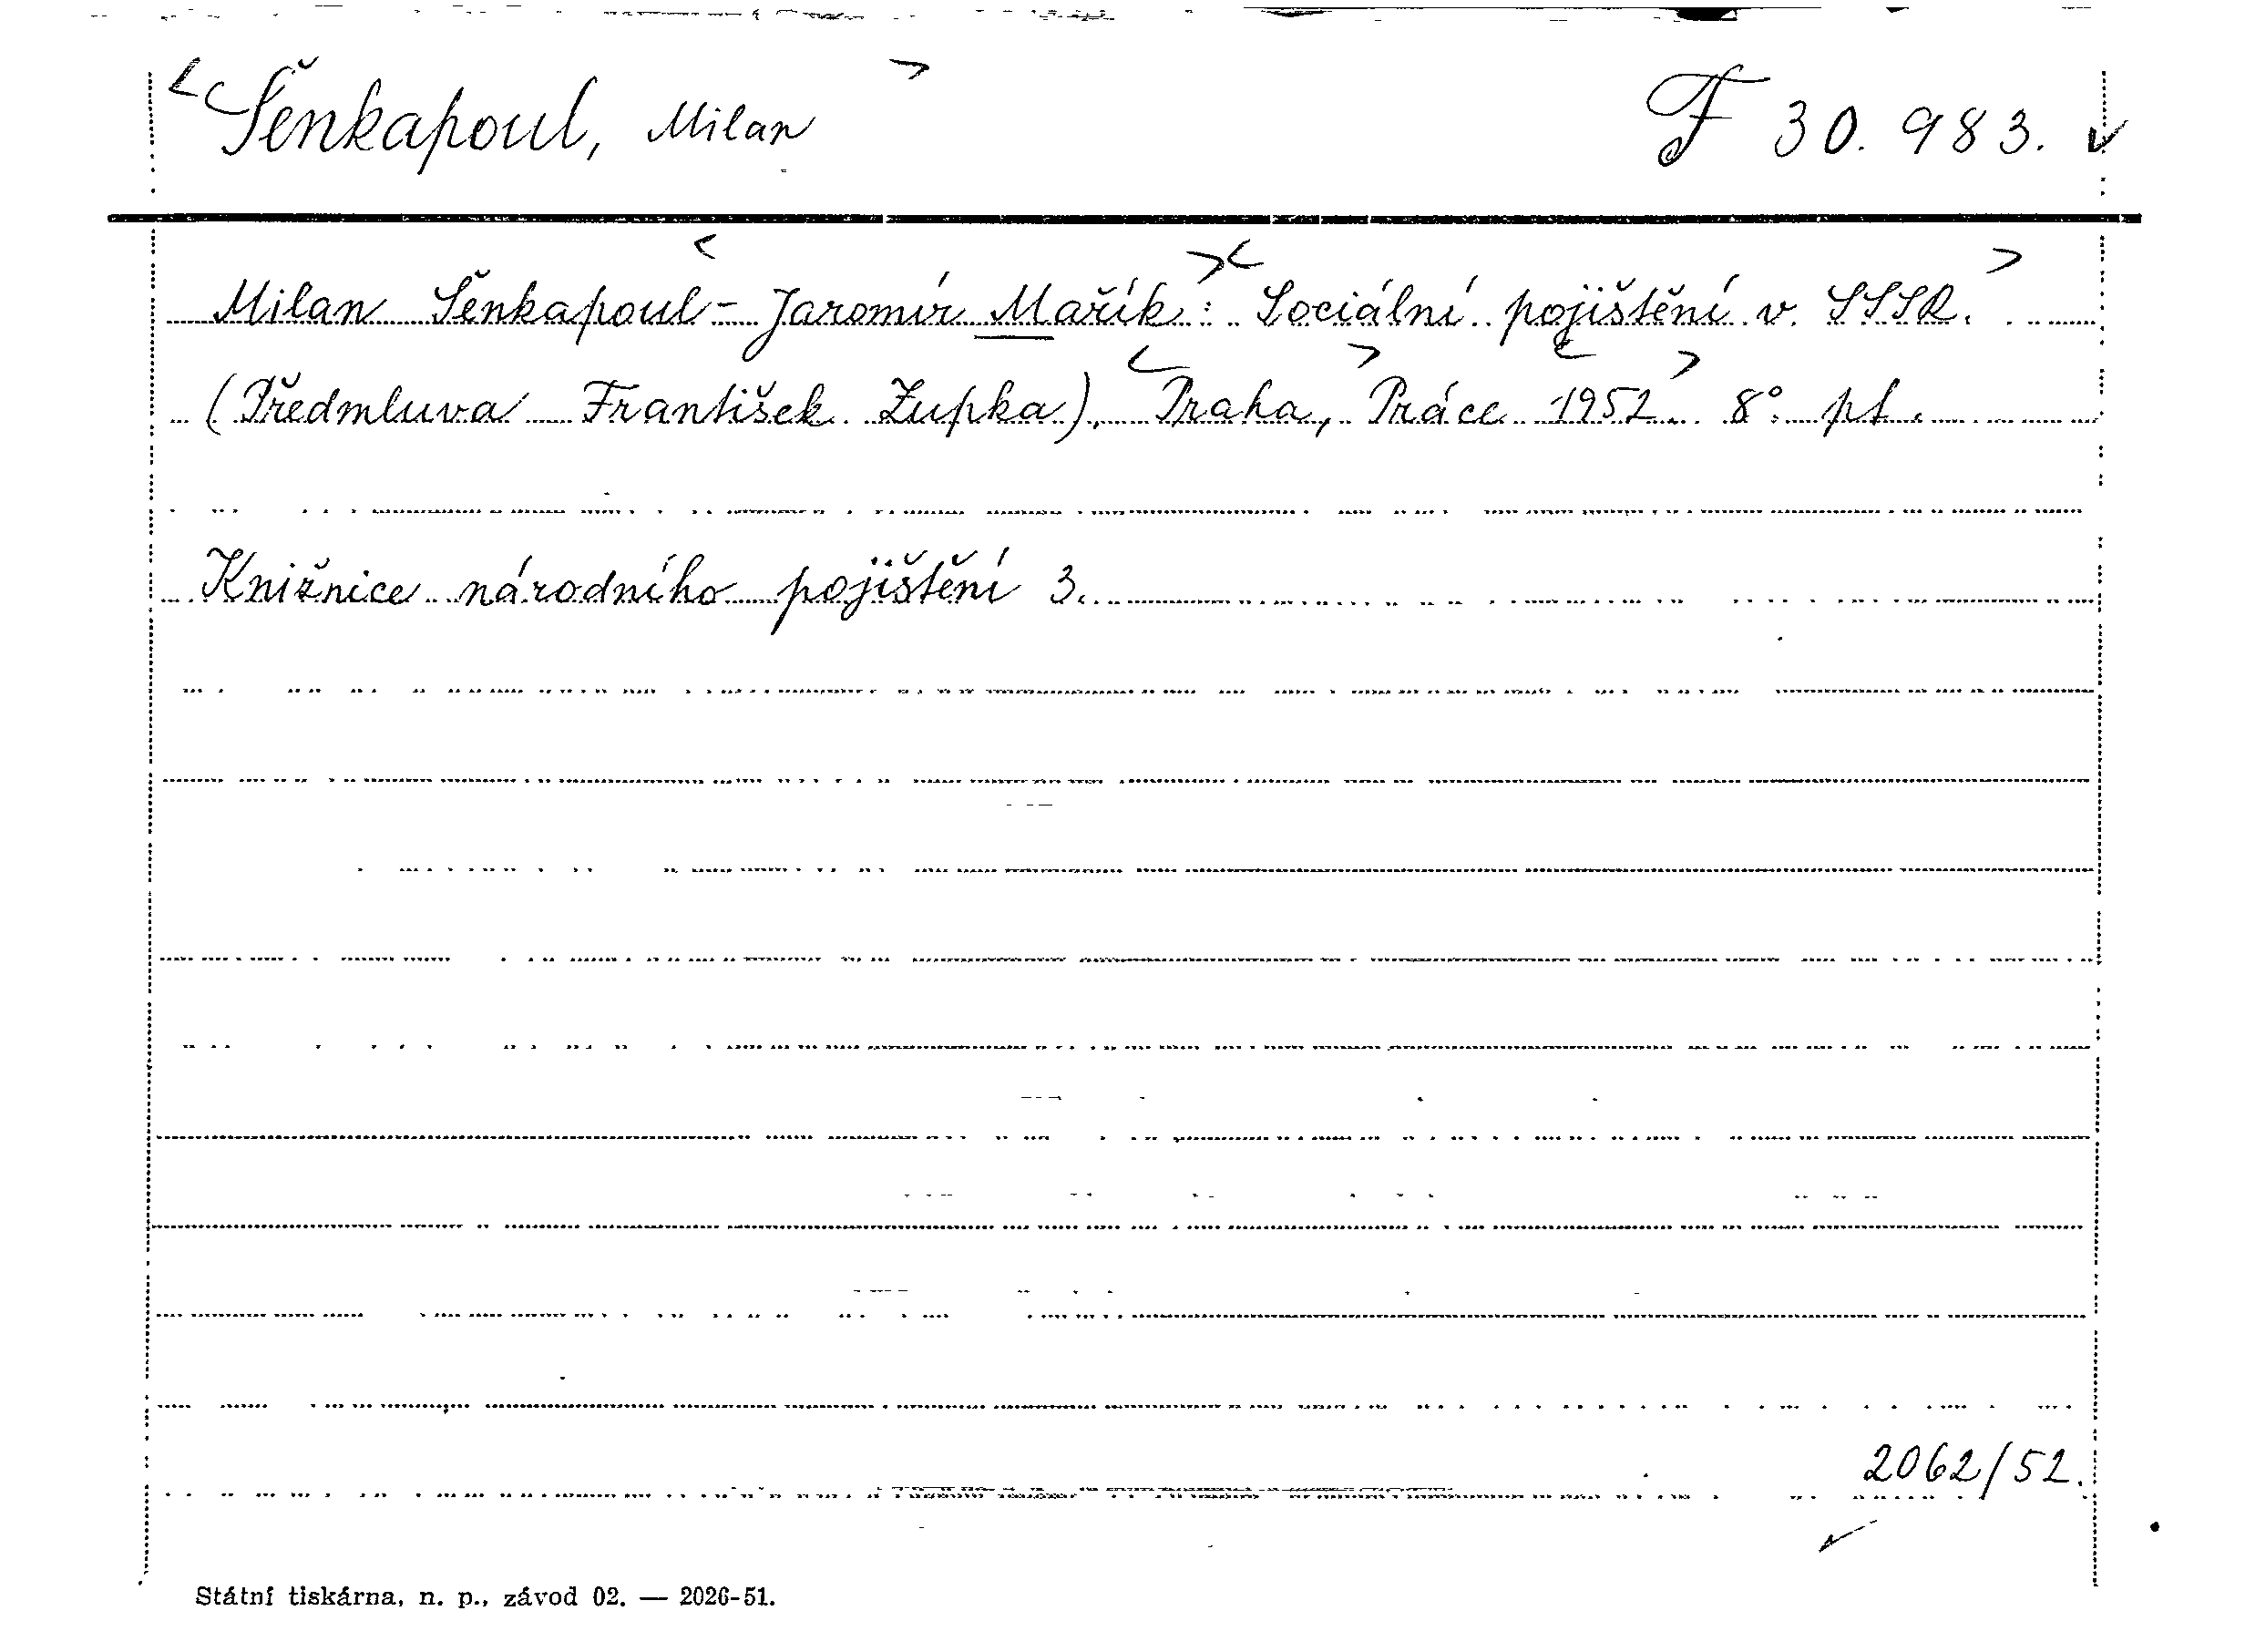 Šěnkapoul, Milan F 30.983.
Milan Šěnkapoul - Jaromír Mařík: Sociální pojištění v SSSR.
(Předmluva František Zupka). Praha, Práce 1952. 8°. pt.
Knižnice národního pojištění 3.
2062/52.
Státní tiskárna, n. p., závod 02. — 2026-51.